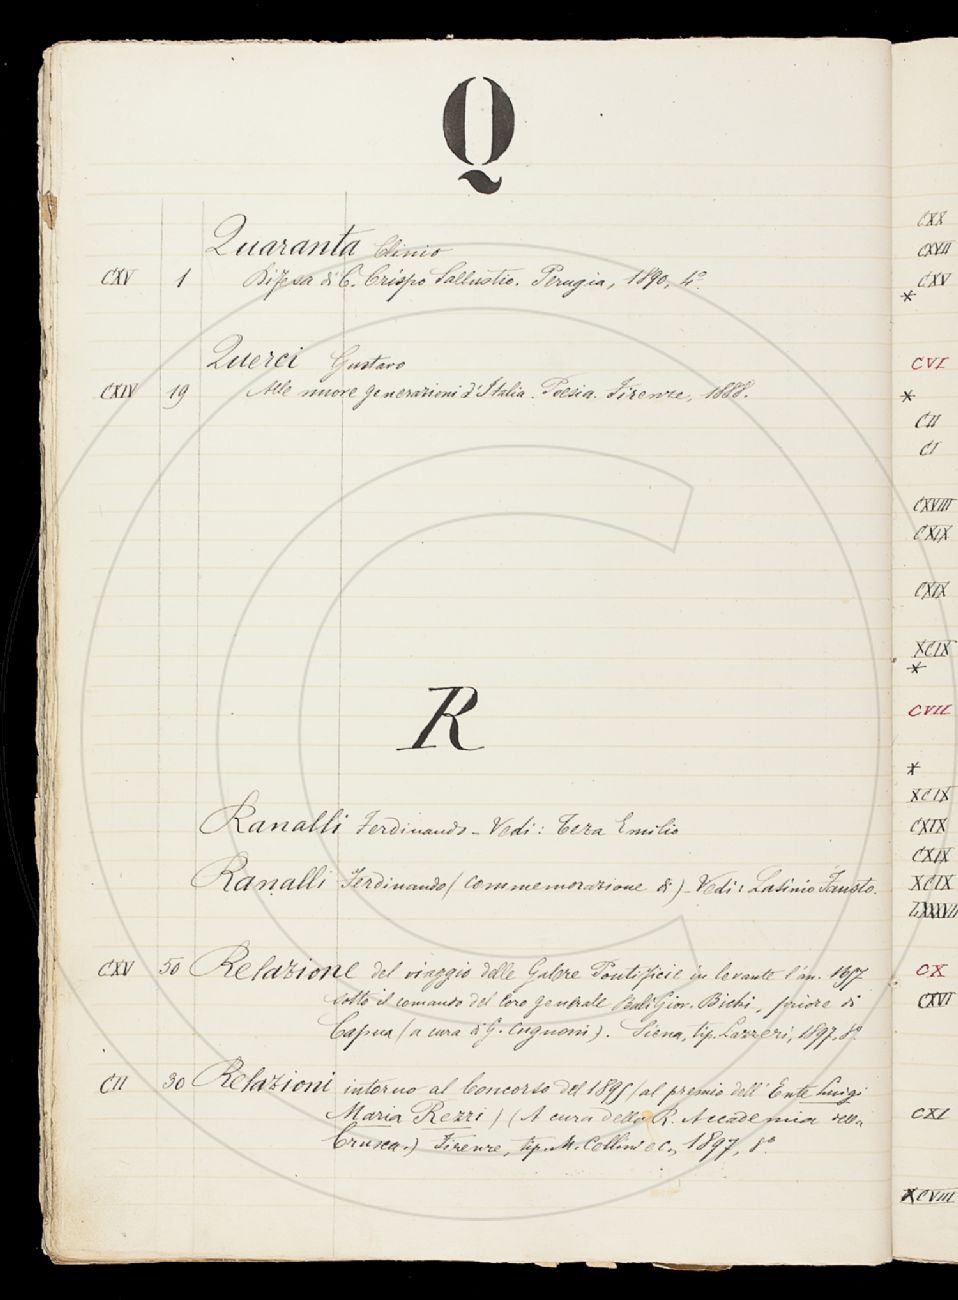 Q
Quaranta Clinio
CXV 1 Difesa di C. Crispo Sallustio. Perugia, 1890, 4º.
Querci Gustavo
CXIV 19 Alle nuove generazioni d'Italia. Poesia. Firenze, 1888.
R
Ranalli Ferdinando - Vedi: Teza Emilio
Ranalli Ferdinando (Commemorazione di) - Vedi: Lasinio Fausto.
CXV 50 Relazione del viaggio delle Galere Pontificie in levante l'an.
sotto il comando del loro generale Gio. Bichi, priore di
Capua (a cura di G. Cugnoni). Siena, tip. Lazzeri, 1897, 8º.
CII 30 Relazioni intorno al Concorso del (al premio dell'Ente Luigi
Maria Rezzi) (A cura della R. Accademia della
Crusca.) Firenze, tip. M. Cellini e C., 1897, 8º.
CXX
CXVII
CXV
*
CVI
*
CII
CI
CXVIII
CXIX
CXIX
XCIX
*
CVII
*
XCIX
CXIX
CXIX
XCIX
CX
CXVI
CXI
XCVIII